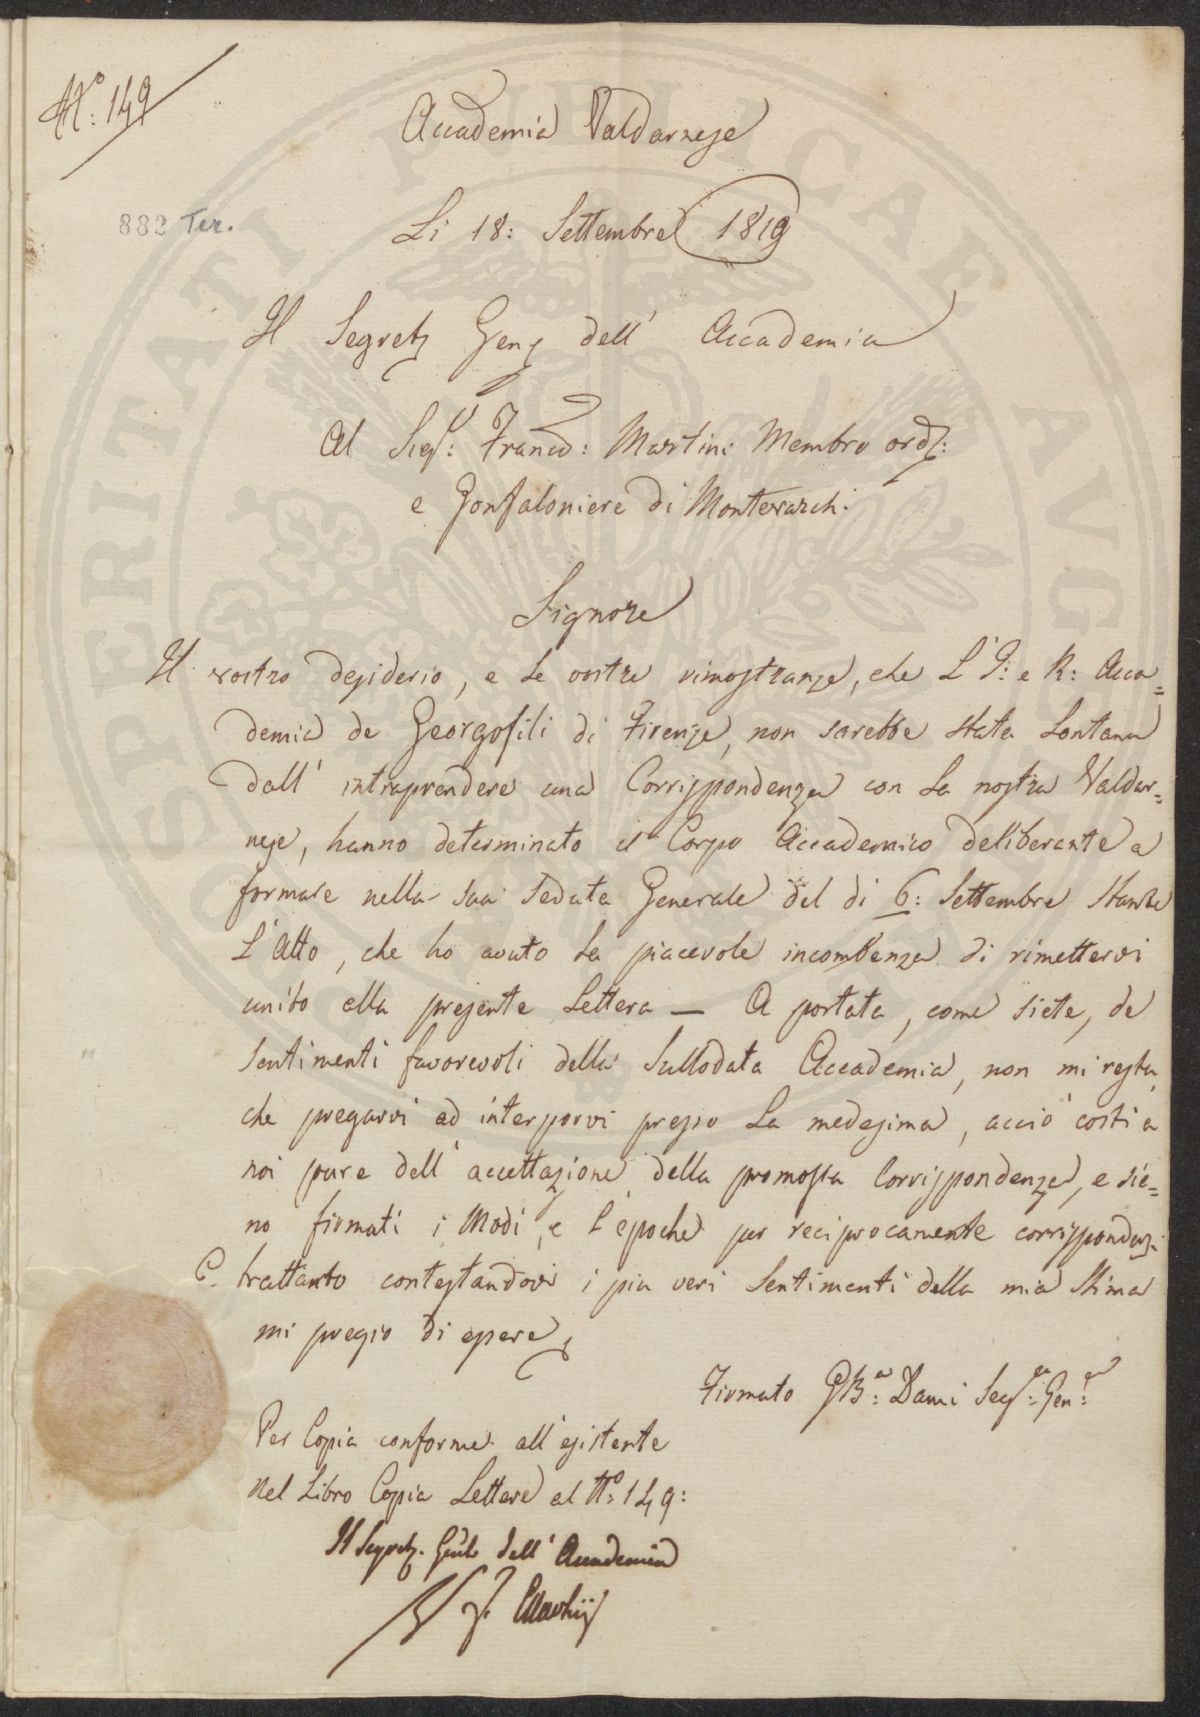 N.º 149
Accademia Valdarnese
882 Ter.
Li 18: Settembre 1819
Il Segret Gen dell' Accademia
Al Sig.: Franco: Martini Membro ord:
e Gonfaloniere di Montevarchi
Signore
Il vostro desiderio, e le vostre rimostranze, che L' I: e R: Acca=
demia de Georgofili di Firenze, non sarebbe stata Lontana
dall' intraprendere una Corrispondenza con La nostra Valdar=
nese, hanno determinato il Corpo Accademico deliberante a
formare nella sua Seduta Generale del di 6: Settembre Stante
L'Atto, che ho avuto La piacevole incombenza di rimettervi
unito alla presente Lettera — A portata, come siete, de
Sentimenti favorevoli della Sullodata Accademia, non mi resta,
che pregarvi ad interporvi presso La medesima, acciò costi a
noi pure dell' accettazione della promossa Corrispondenza, e sie=
no firmati i Modi, e l'epoche per reciprocamente corrisponderci
E trattanto contestandovi i piu veri Sentimenti della mia Stima
mi pregio di essere
Firmato GB.a: Dami Seg.: Gen.:
Per Copia conforme all' esistente
Nel Libro Copia Lettere al N.º 149:
Il Segret. Genle dell' Accademia
PROSPERITATI PUBLICAE AUG